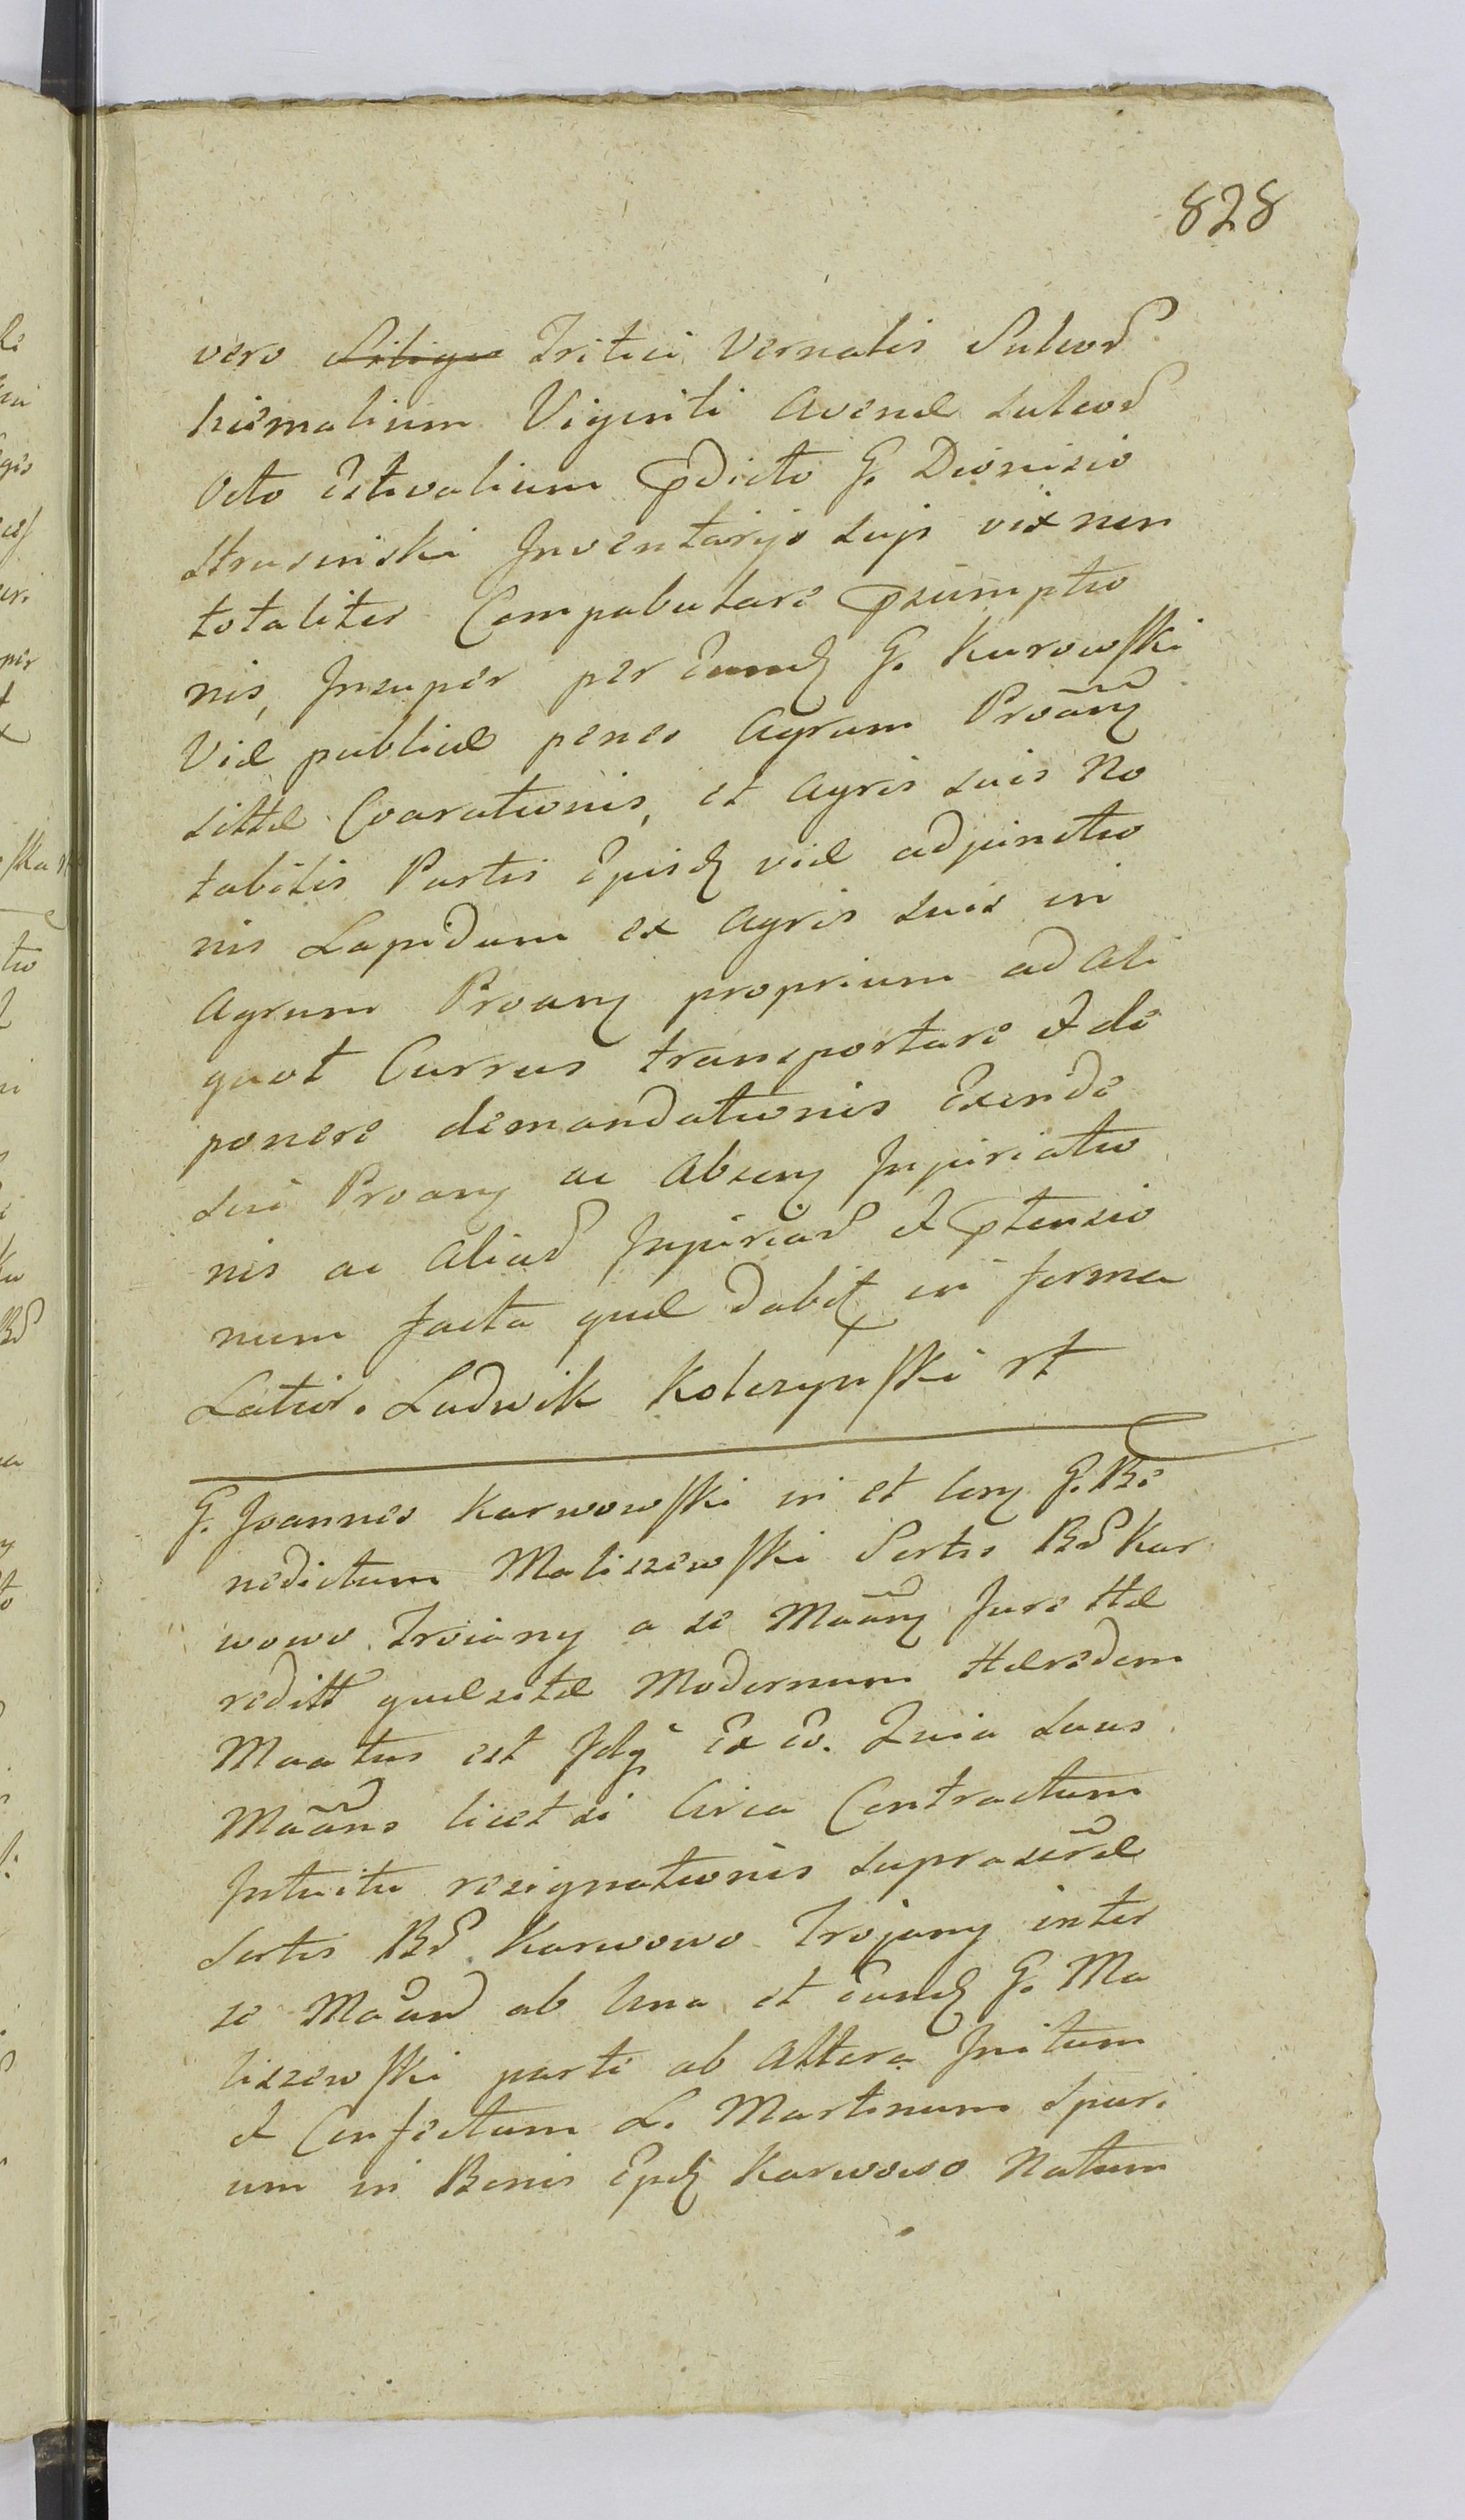 828
vero Siligis Tritici Vernalis Sulcoꝝ
hiemalium Viginti Avenæ sulcoꝝ
Octo Estivalium ꝑdicto G. Dionisio
Strusinski Inventarijs suis vix non
totaliter Compabulare ꝑsumptio
nis, Insuper per Eundꝫ G. Kurowski
Viæ publicæ penes Agrum Proanꝫ
sittæ Coarationis, et agris suis No
tabilis Partis Ejusdꝫ viæ adjunctio
nis Lapidum ex Agris suis in
Agrum Proanꝫ proprium ad ali
quot Currus transportare et de
ponere demandationis Exinde
sui Proanꝫ ac Absenꝫ Injuriatio
nis ac aliaꝝ Injuriaꝝ et ꝑtensio
num facta quæ dabit in forma
Latior. Ludwik Kolczynski rt
G. Joannes Karwowski in et Conꝫ G. Be
nedictum Maliszewski Sortis BB Kar
wowo Troiany a se Maanꝫ Jure Hæ
reditt quæsitæ Modernum Hæredem
Maatus est Idqꝫ Ex Eo. Quia suus
Maans licet si Circa Contractum
Intuitu resignationis suprascræ
Sortis BB Karwowo Trojany inter
se Maan ab Una et Eundꝫ G. Ma
liszewski parte ab Altera Initum
et Confectum L. Martinum Spuri
um in Bonis Ejusdꝫ Karwowo Natum